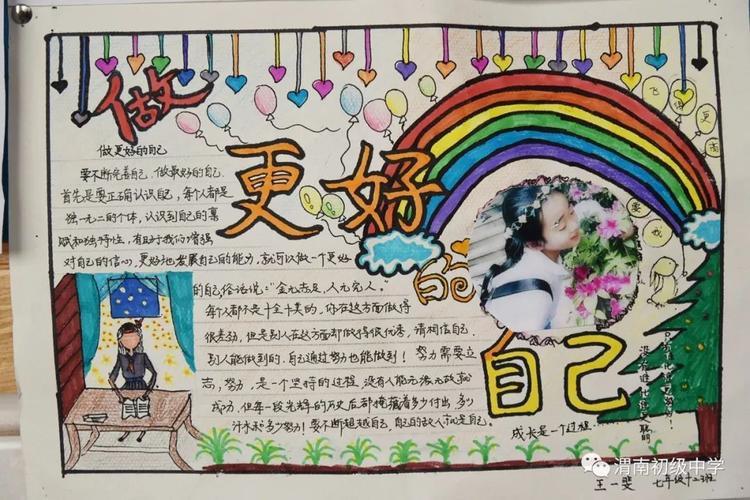 做
更好
的
自己
做更好的自己
要不断完善自己，做最好的自己
首先是要正确认识自己，每个人都是
独一无二的个体，认识到自己的禀
赋和独特性，有助于我们增强
对自己的信心，更好地发展自己的能力，就可以做一个更好
的自己俗话说："金无足赤，人无完人。"
每个人都不是十全十美的，你在这方面做得
很差劲，但是别人在这方面却做得很优秀，请相信自己，
别人能做到的，自己通过努力也能做到！努力需要立
志，努力，是一个坚持的过程，没有人能无缘无故
成功，但每一段光辉的历史后都掩藏着多少付出，多少
汗水和多少努力！要不断超越自己，自己的敌人就是自己。
飞得更高
要我
成长是一个过程
王一斐
七年级十二班
渭南初级中学